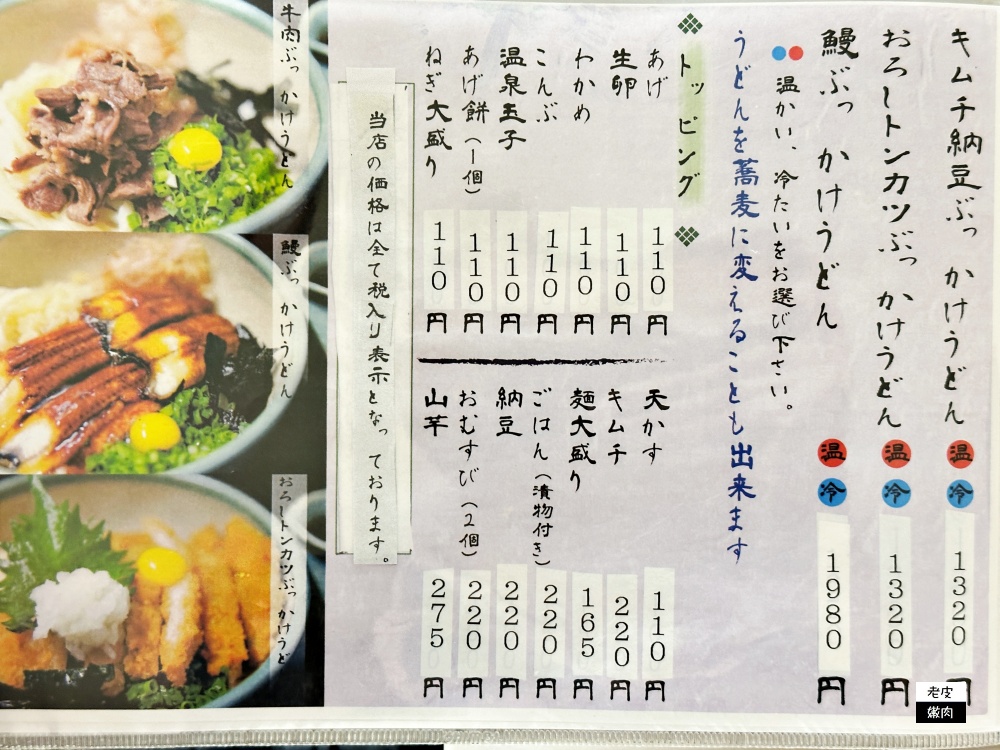 キムチ納豆ぶっかけうどん 温 冷 1320円
おろしトンカツぶっかけうどん 温 冷 1320円
鰻ぶっかけうどん 温 冷 1980円
温かい、冷たいをお選び下さい。
うどんを蕎麦に変えることも出来ます
トッピング
あげ 110円
生卵 110円
わかめ 110円
こんぶ 110円
温泉玉子 110円
あげ餅(一個) 110円
ねぎ大盛り 110円
天かす 110円
キムチ 220円
麺大盛り 165円
ごはん(漬物付き) 220円
納豆 220円
おむすび(2個) 220円
山芋 275円
当店の価格は全て税入り表示となっております。
牛肉ぶっかけうどん
鰻ぶっかけうどん
おろしトンカツぶっかけうど
老皮
嫩肉